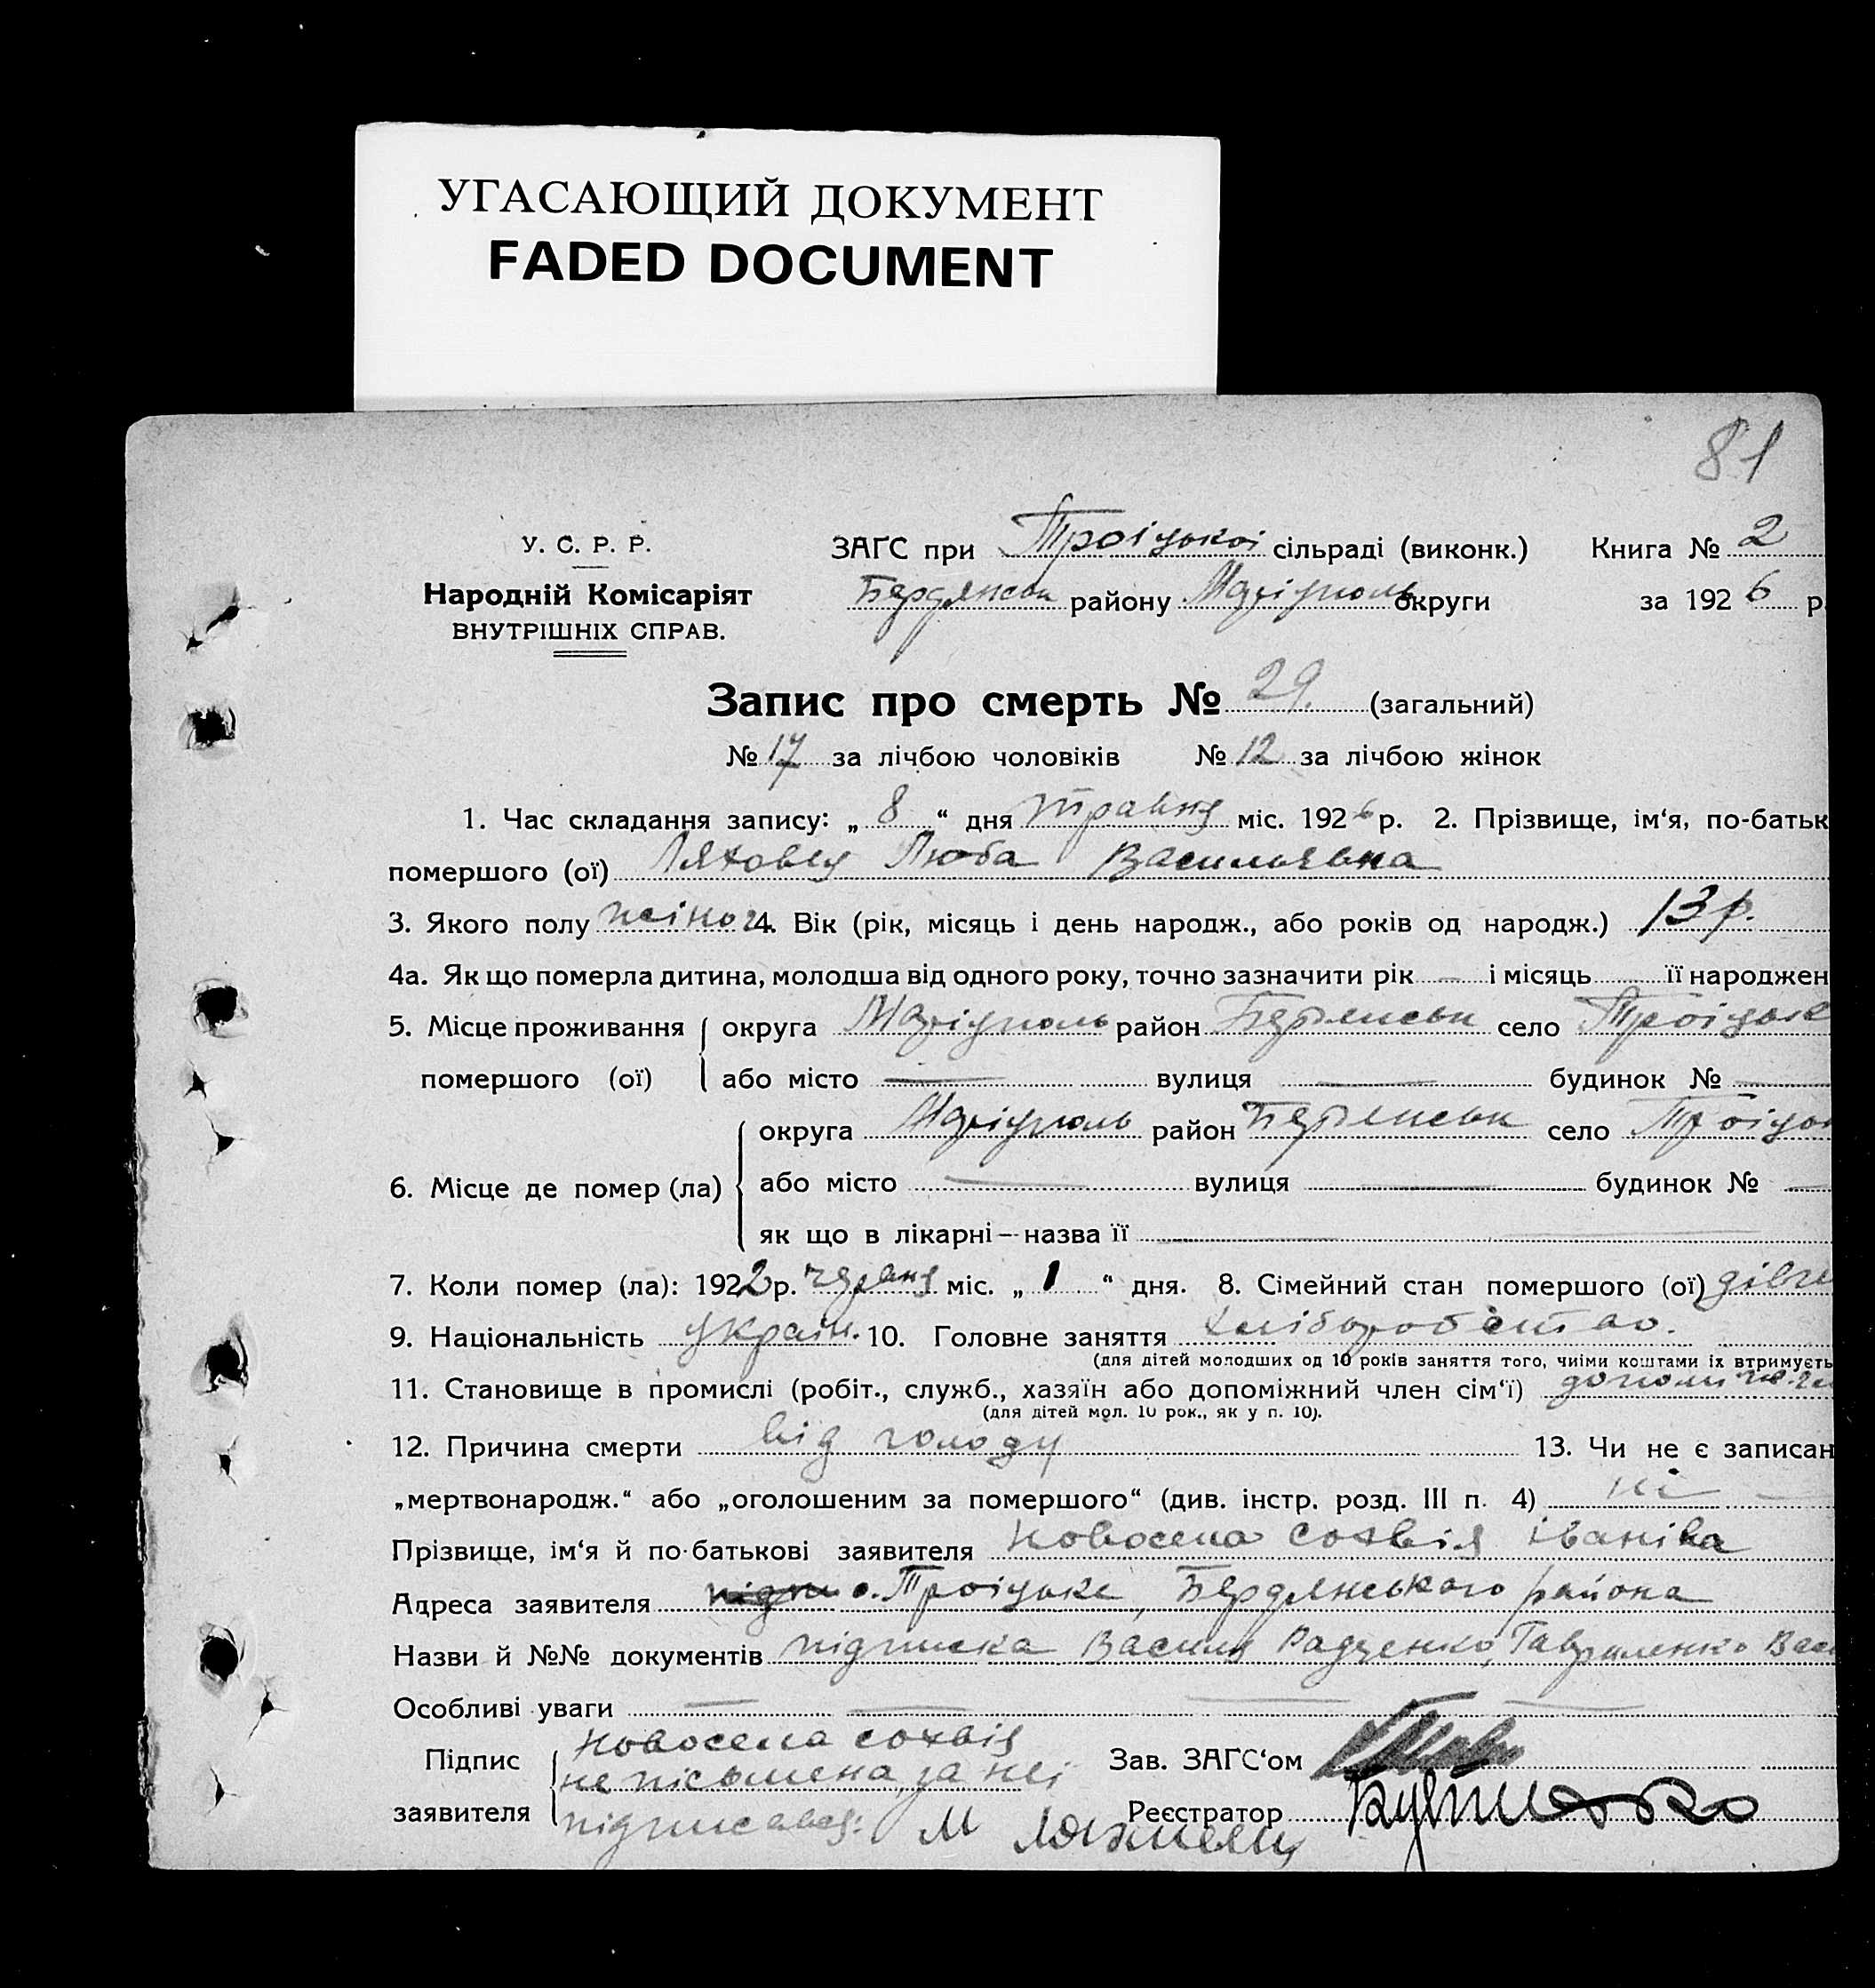 УГАСАЮЩИЙ ДОКУМЕНТ
FADED DOCUMENT
81
У. С. Р. Р.
Народній Комісаріят
ВНУТРІШНІХ СПРАВ.
ЗАҐС при Троіцькоі сільраді (виконк.) Книга № 2
Бердянськ району Маріуполь округи за 1926 р.
Запис про смерть № 29. (загальний)
№ 17 за лічбою чоловіків № 12 за лічбою жінок
1. Час складання запису: „ 8 “ дня травня міс. 1926 р. 2. Прізвище, ім‘я, по-батьк
помершого (ої) Ляховец Люба Васильевна
3. Якого полу жіноч 4. Вік (рік, місяць і день народж., або років од народж.) 13 р.
4а. Як що померла дитина, молодша від одного року, точно зазначити рік — і місяць її народжен
5. Місце проживання помершого (ої) округа Маріуполь район Бердянськ село Троіцьке
або місто — вулиця — будинок № —
6. Місце де помер (ла) округа Маріуполь район Бердянськ село Троіцьк
або місто — вулиця — будинок № —
як що в лікарні – назва її —
7. Коли помер (ла): 1922 р. червня міс. „ 1 “ дня. 8. Сімейний стан помершого (ої) дівч
9. Національність україн. 10. Головне заняття хліборобство.
(для дітей молодших од 10 років заняття того, чиїми коштами їх втримуєть
11. Становище в промислі (робіт., служб., хазяїн або допоміжний член сім‘ї)
(для дітей мол. 10 рок., як у п. 10).
12. Причина смерти від голоду 13. Чи не є записан
„мертвонародж.“ або „оголошеним за помершого“ (див. інстр. розд. III п. 4) ні —
Прізвище, ім‘я й по-батькові заявителя Новосела Сохвія Іванівна
Адреса заявителя с. Троіцьке, Бердянського района
Назви й №№ документів підписка Василя Радченко, Гавриленко Васи
Особливі уваги — — — —
Підпис заявителя Новосела Сохвія
не пісьмена, за неі
підписавсь: М
Зав. ЗАҐС‘ом
Реєстратор